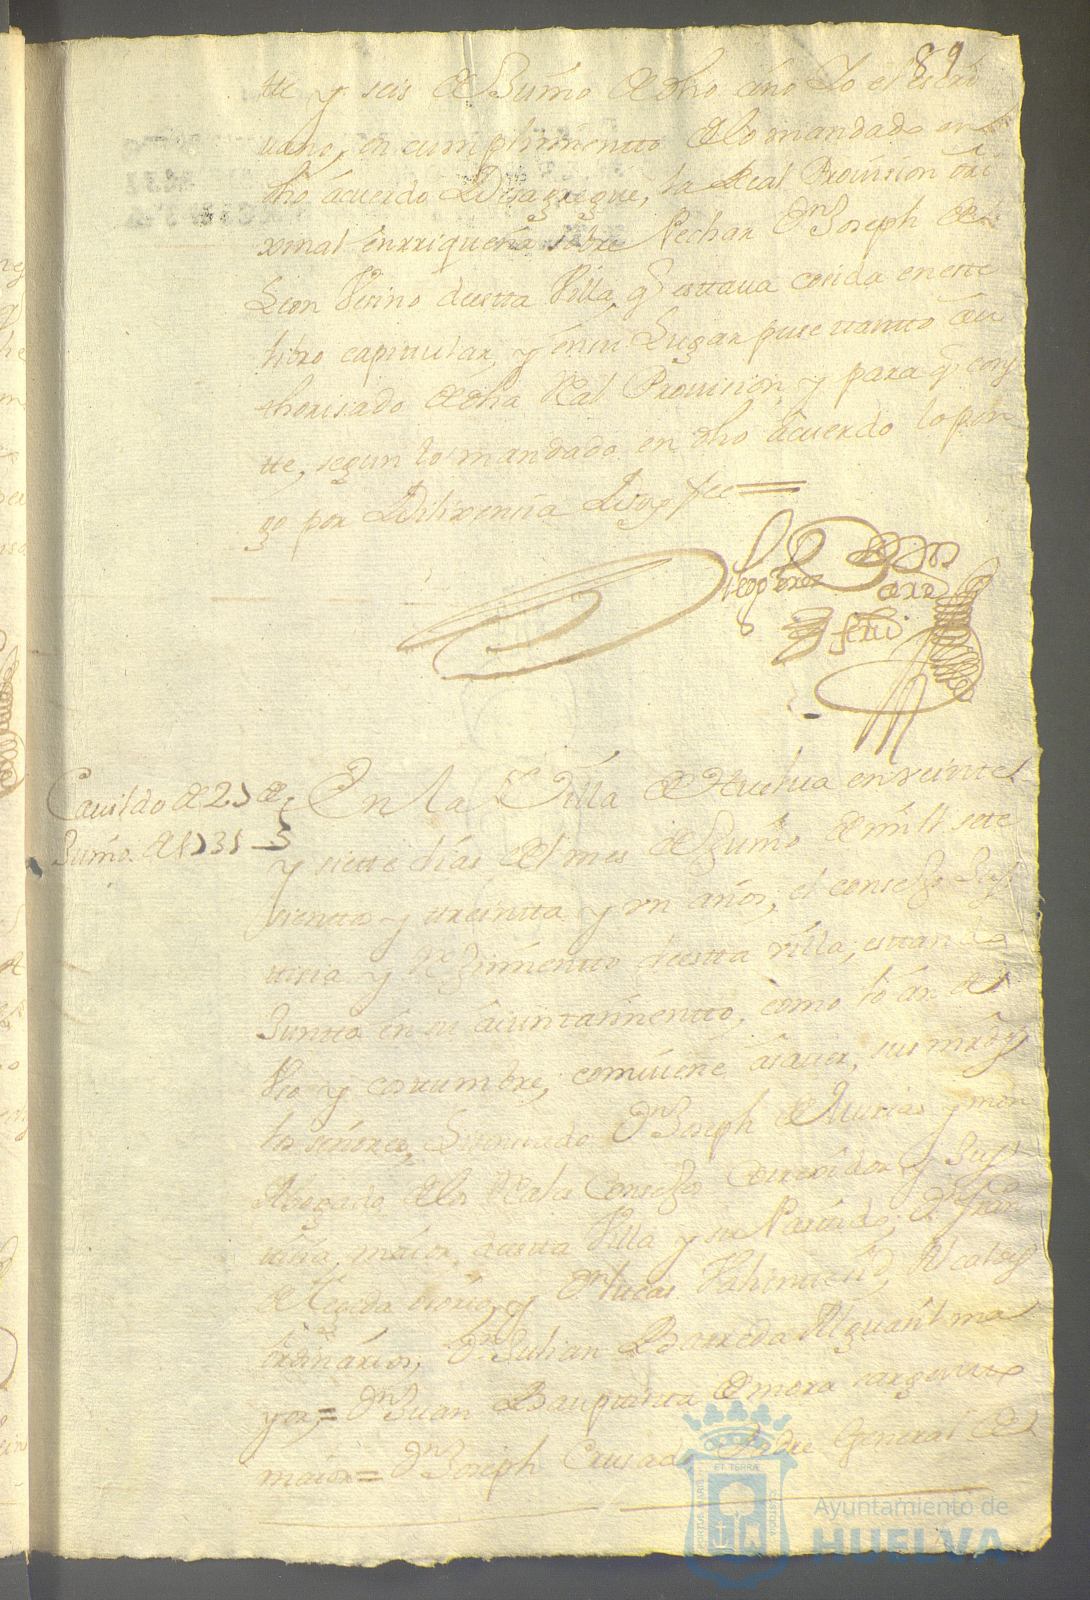 89
tte y seis de Junio de dho año Yo el escri
uano, en cumplimientto de lo mandado en
dho acuerdo Desagregue, la Real Provision ori
xinal enrriqueña sobre Pechar Dn Joseph de
Leon Vezino desta Villa, q esttaua cosida en este
libro capitular, y en su Lugar puse ttantto au
thorisado de dha Real Provision, y para q cons
tte, segun lo mandado en dho acuerdo lo pon
go por Dilixencia Doy fee
Cauildo de 27 de
Junio de 1731
En la Villa de Huelua en veintte
y siette dias del mes de Junio de mill sete
cientos y treintta y un años, el consejo Jus
ticia y Rejimientto desta villa, esttando
Juntto en su aiuntamientto, como lo an de
Vso y costumbre, combiene asauer, sus mrds
los señores, Lizenciado Dn Joseph de Murias y mon
Abogado de los Reales Consejos Correxidor y Jus
ticia maior, desta Villa y su Partido, Dn Franco
de Osorio, y Dn Lucas Alcaldes
ordinarios, Dn Julian Barreda Alguasil ma
yor, = Dn Juan Bauptista de mora sargentto
maior = Dn Joseph Cruzado Padre General de
ET TERRÆ
Ayuntamiento de
HUELVA